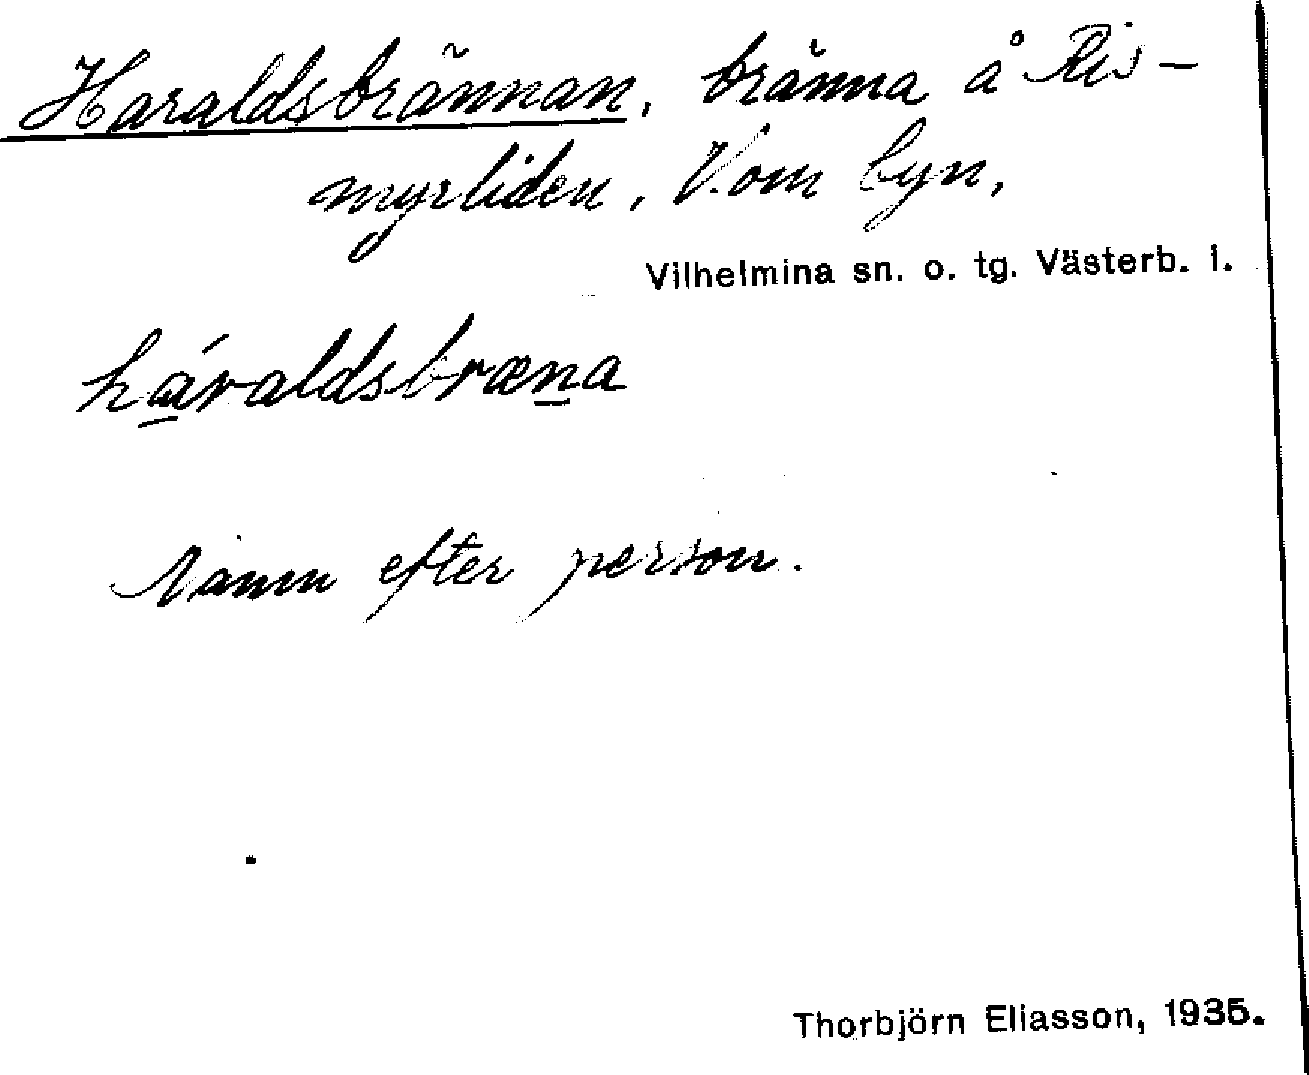 Haraldsbrännan, bränna å Ris-
myrliden, V. om byn,
Vilhelmina sn. o. tg. Västerb. l.
háraldsbræna
Namn efter person.
Thorbjörn Eliasson, 1935.